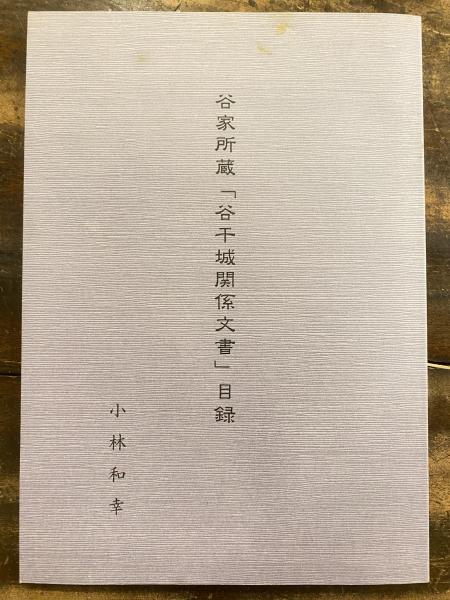 谷家所蔵「谷干城関係文書」目録
小林和幸